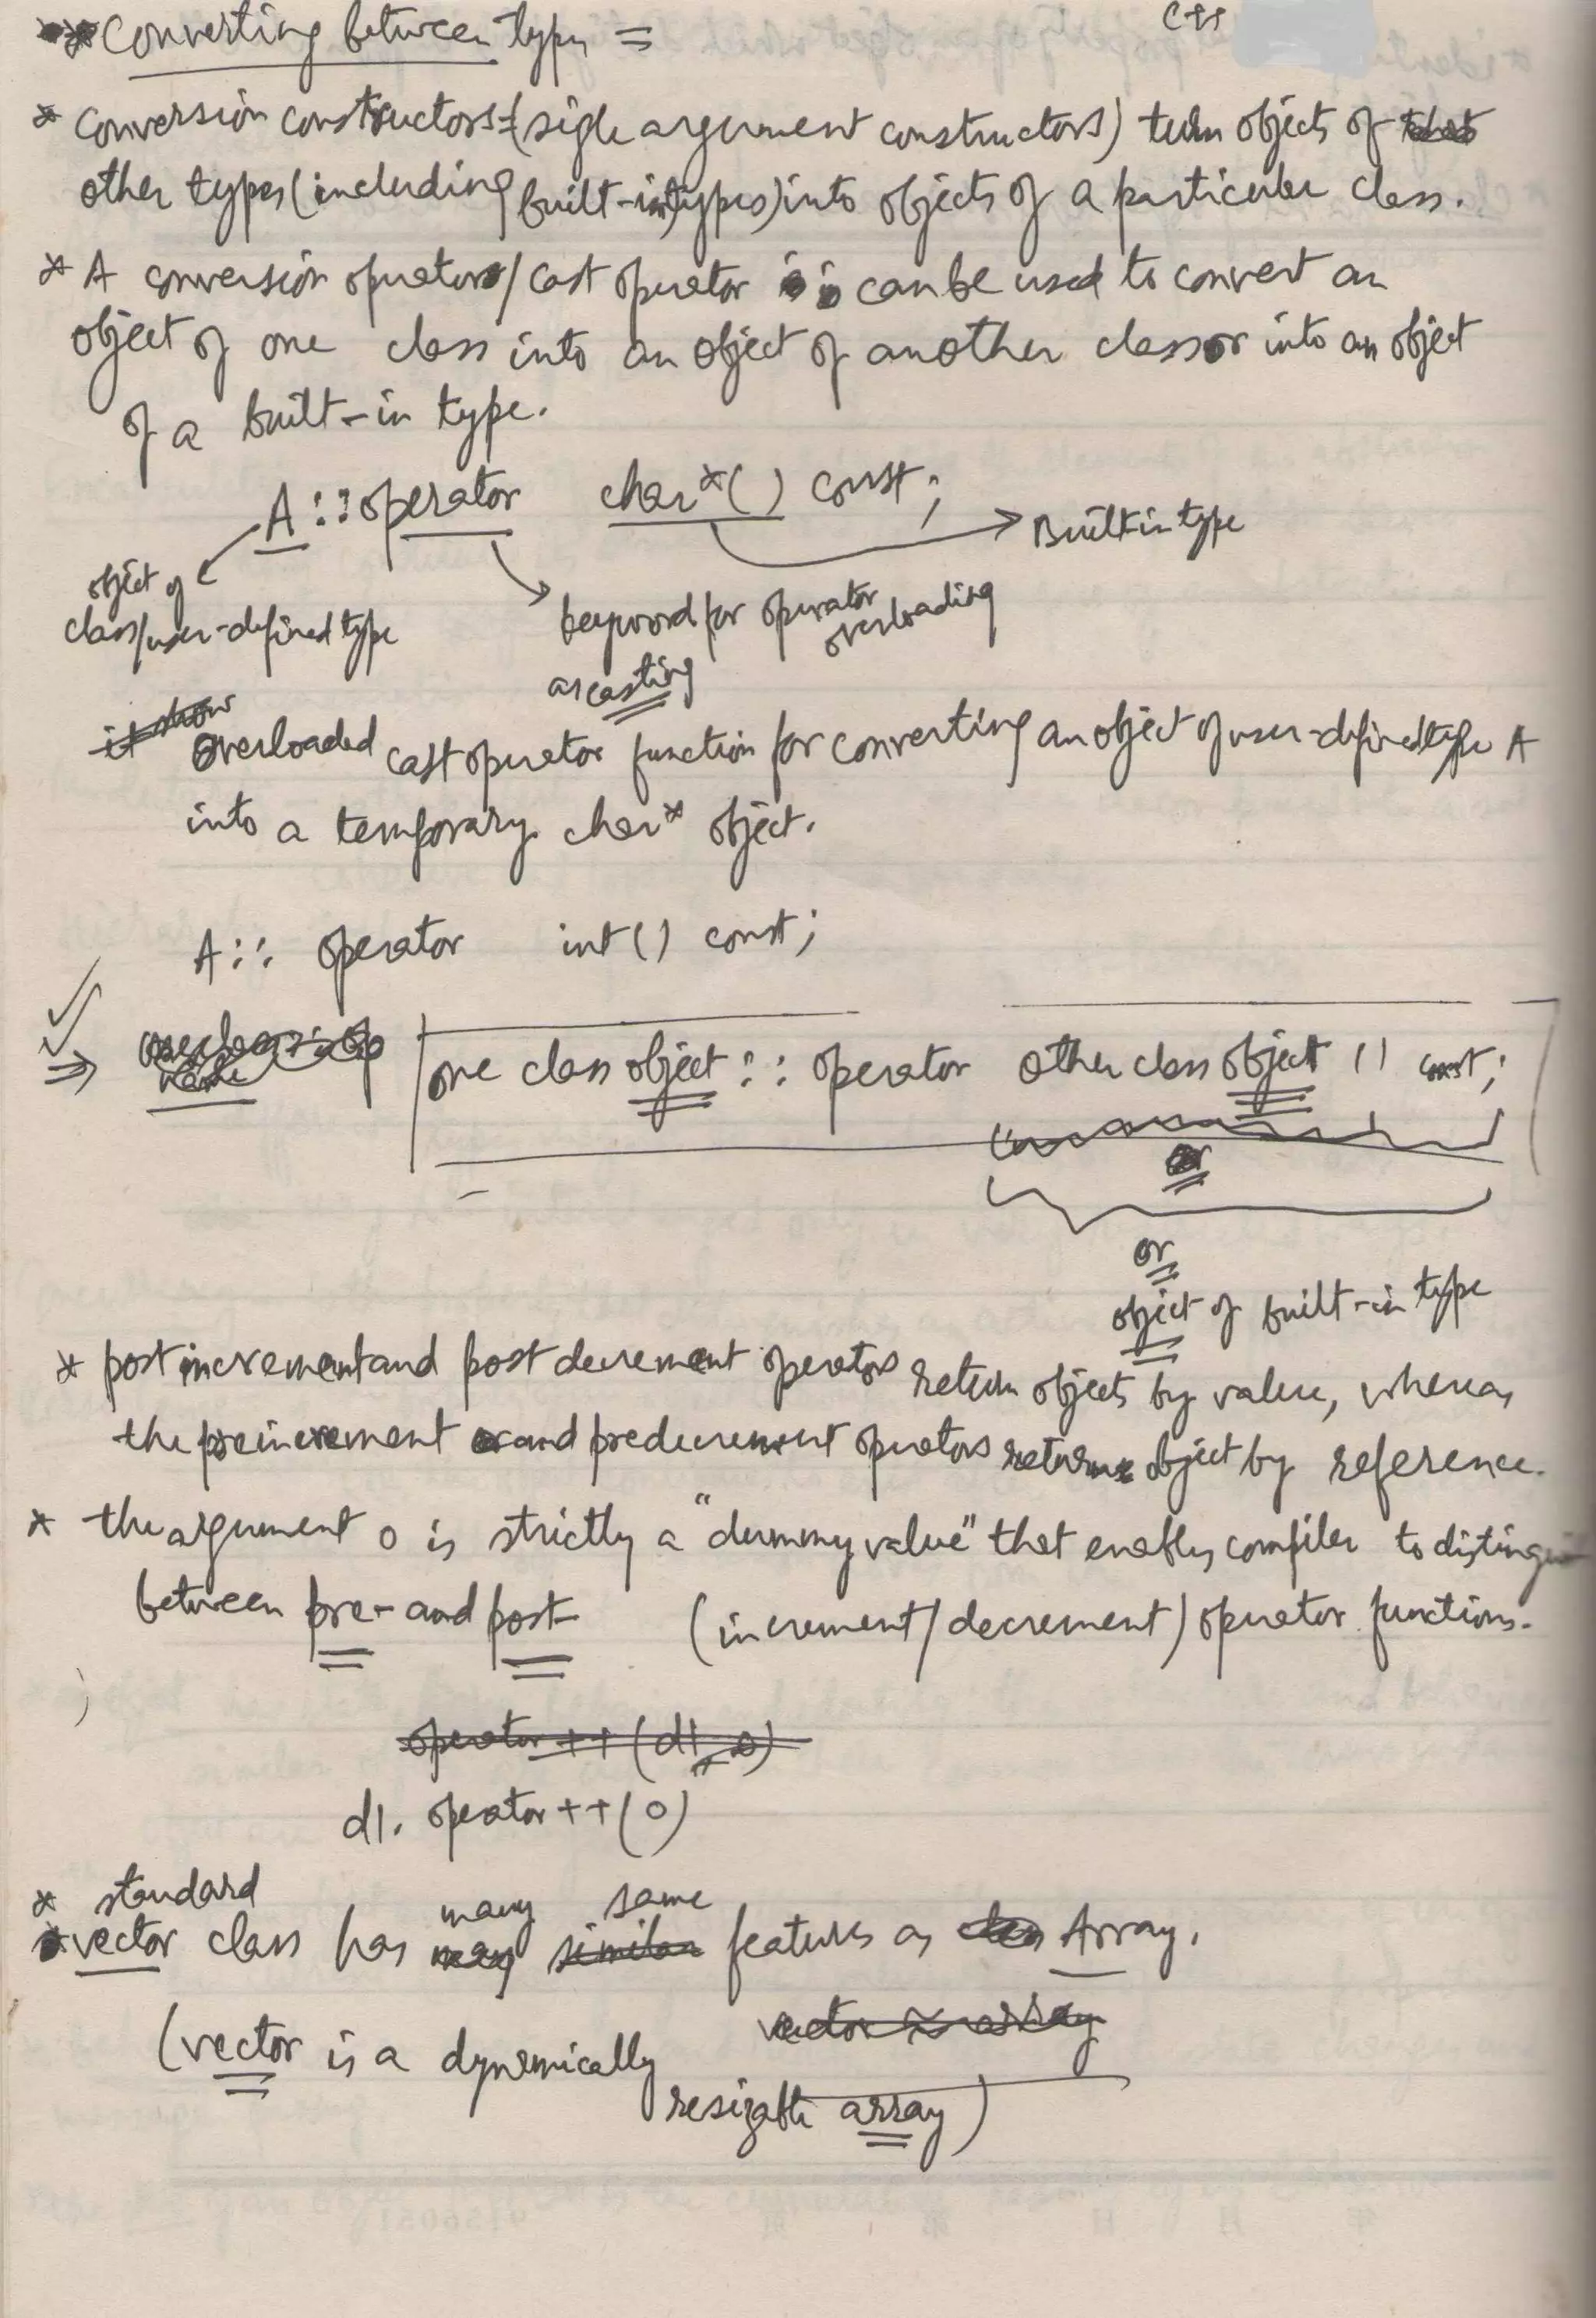 C++
** Converting between types =
* Conversion constructors = (sigle argument constructors) turn objects of
other types (including built-in types) into objects of a particular class.
* A conversion operator / cast operator can be used to convert an
object of one class into an object of another class or into an object
of a built-in type.
A::operator char*() const;
Built in type
object of
class/user-defined type
keyword for operator
overloading
as casting
it show
Overloaded cast operator function for converting an object of user-defined type A
into a temporary char* object.
A:: operator int() const;
⇒ one class object :: operator other class object () const;
or
or
object of built-in type
* post increment and post decrement operators return objects by value, whereas
the preincrement and predecrement operators return object by reference.
* the argument 0 is strictly a "dummy value" that enables compiler to distingui
between pre- and post- (increment/decrement) operator functions.
operator ++ (d1, 0)
d1. operator++(0)
* standard
many same
* vector class has many similar features as Array.
vector ≈ array
(vector is a dynamically
resizable array)